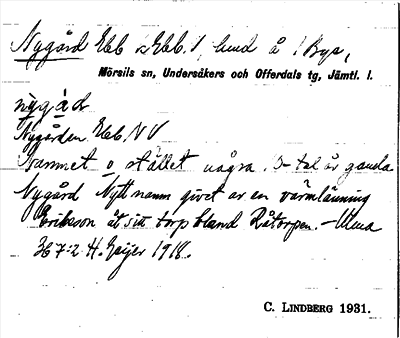 Nygård Ebb 2 Ebb. 1, hmd å 1 Bye,
Mörsils sn, Undersåkers och Offerdals tg, Jämtl. l.
nỳgàḍ
Nygården Ebb. NV
Namnet o stället några. 3-tal år gamla
Nygård Nytt namn givet av en värmlänning
Eriksson åt sitt torp bland Råtorpen. –
36 7:2 H. Geijer 1918.
C. LINDBERG 1931.